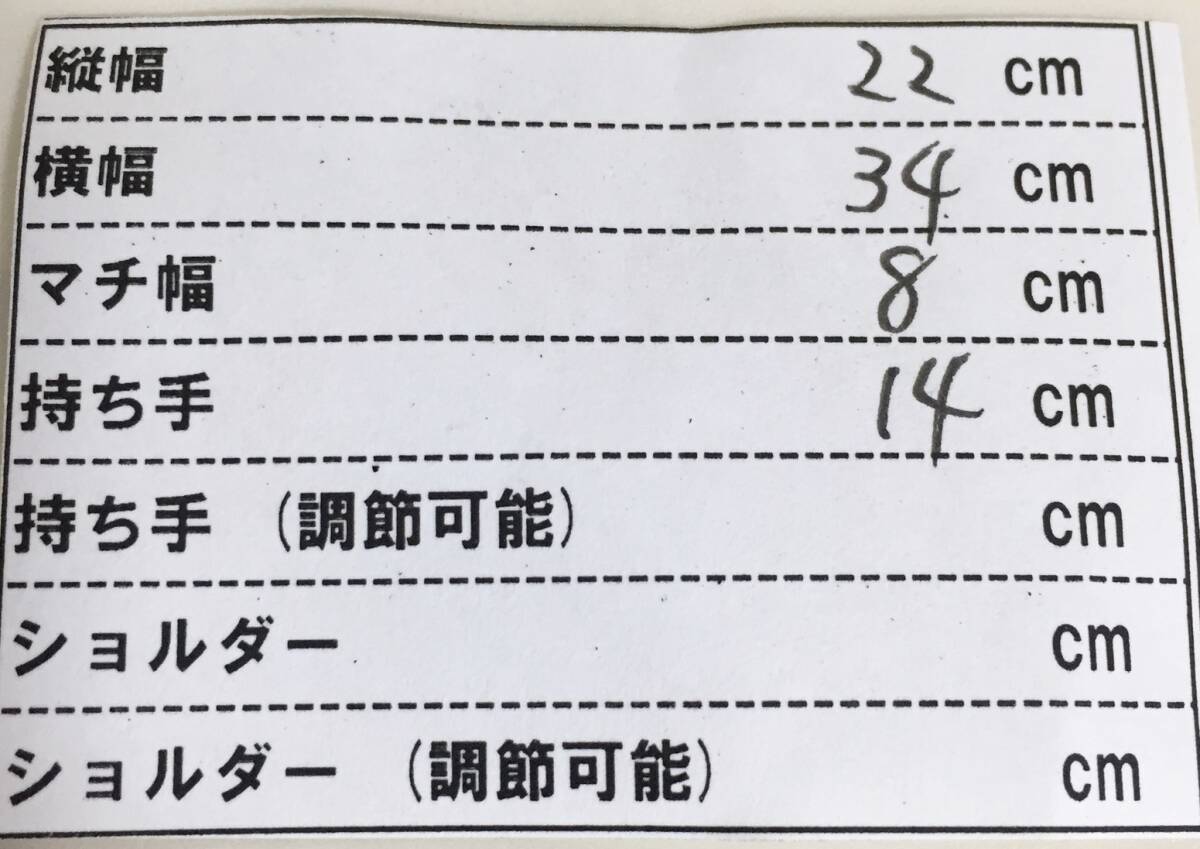 縦幅 22 cm
横幅 34 cm
マチ幅 8 cm
持ち手 14 cm
持ち手 (調節可能) cm
ショルダー cm
ショルダー (調節可能) cm